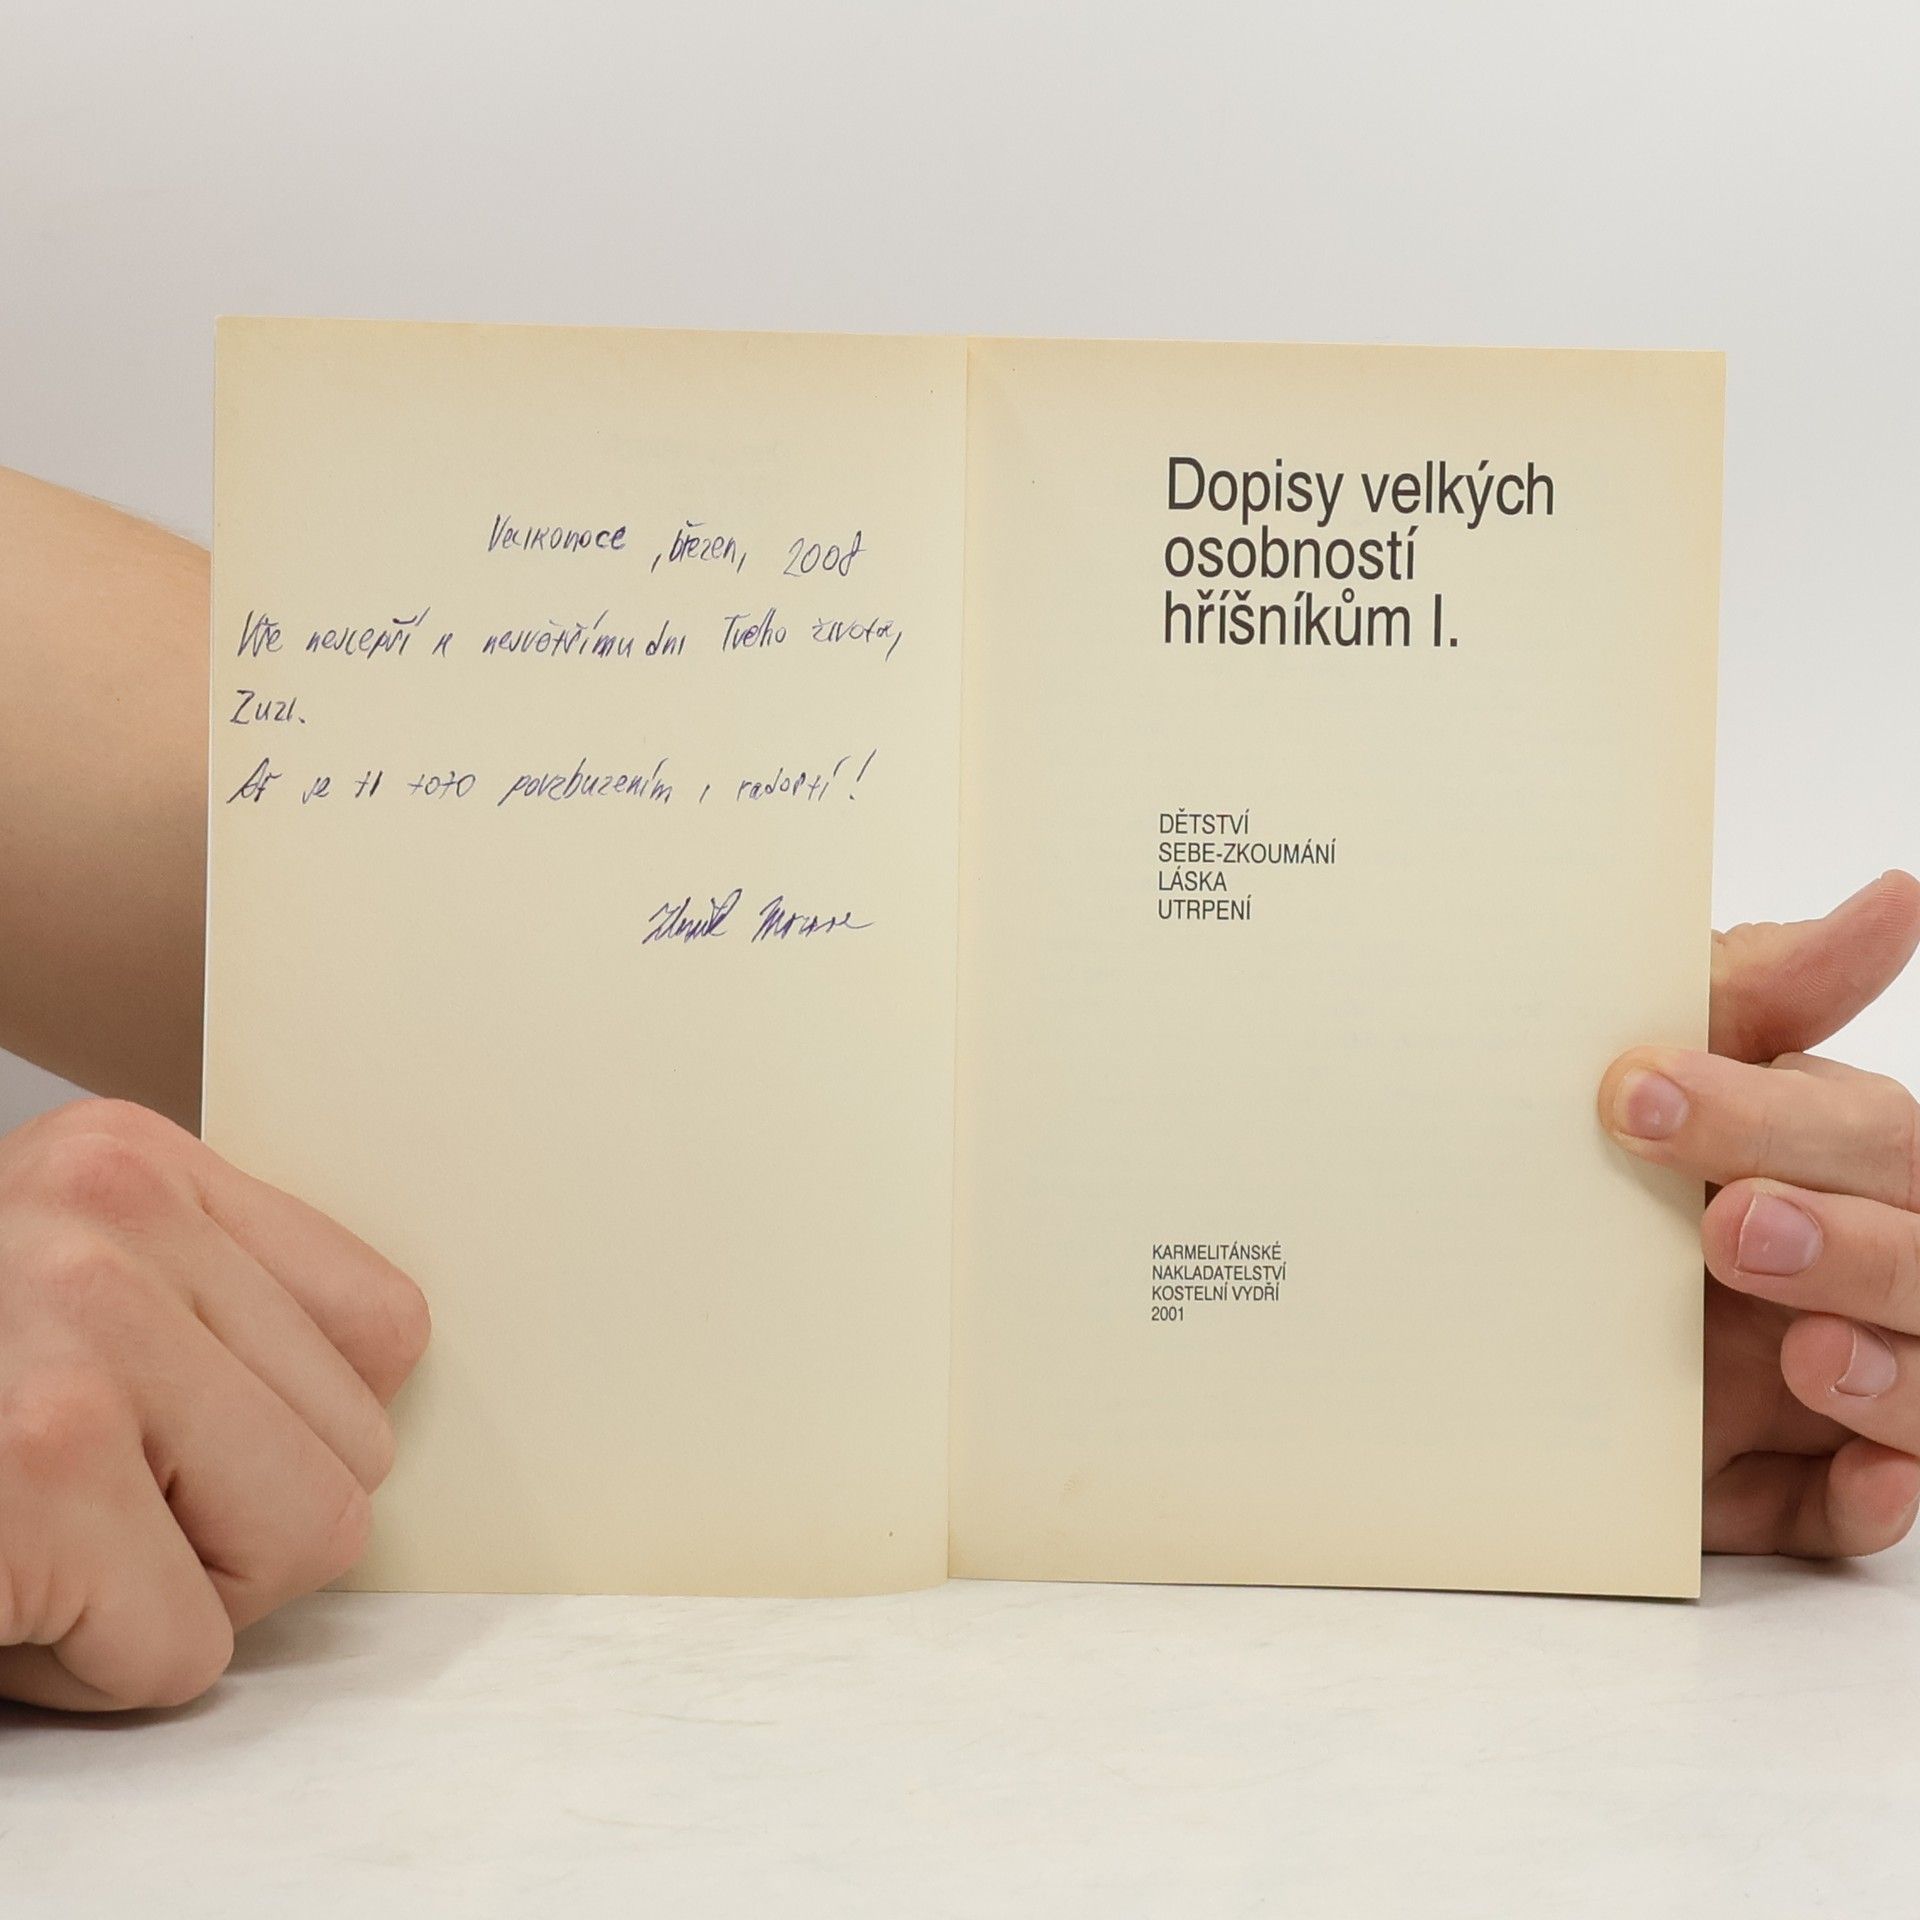 Velikonoce, březen, 2008
Vše nejlepší k největšímu dni Tvého života,
Zuzi.
Ať je ti toto povzbuzením i radostí!
Dopisy velkých
osobností
hříšníkům I.
DĚTSTVÍ
SEBE-ZKOUMÁNÍ
LÁSKA
UTRPENÍ
KARMELITÁNSKÉ
NAKLADATELSTVÍ
KOSTELNÍ VYDŘÍ
2001